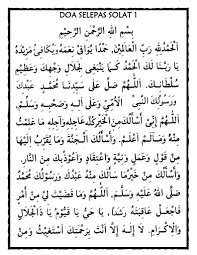 DOA SELEPAS SOLAT 1
بِسْمِ اللهِ الرَّحْمٰنِ الرَّحِيْمِ
اَلْحَمْدُ لِلّٰهِ رَبِّ الْعَالَمِيْنَ، حَمْدًا يُوَافِيْ نِعَمَهُ وَيُكَافِئُ مَزِيْدَهُ
يَا رَبَّنَا لَكَ الْحَمْدُ كَمَا يَنْبَغِيْ لِجَلَالِ وَجْهِكَ وَعَظِيْمِ
سُلْطَانِكَ. اَللّٰهُمَّ صَلِّ عَلَى سَيِّدِنَا مُحَمَّدٍ عَبْدِكَ
وَرَسُوْلِكَ النَّبِيِّ الْأُمِّيِّ وَعَلَى اٰلِهِ وَصَحْبِهِ وَسَلِّمْ.
اَللّٰهُمَّ إِنِّيْ أَسْأَلُكَ مِنَ الْخَيْرِ كُلِّهِ عَاجِلِهِ وَآجِلِهِ مَا عَلِمْتُ
مِنْهُ وَمَا لَمْ أَعْلَمْ. أَسْأَلُكَ الْجَنَّةَ وَمَا يُقَرِّبُ إِلَيْهَا
مِنْ قَوْلٍ وَعَمَلٍ وَنِيَّةٍ وَاعْتِقَادٍ وَأَعُوْذُ بِكَ مِنَ النَّارِ.
وَأَسْأَلُكَ مِنْ خَيْرِ مَا سَأَلَكَ مِنْهُ عَبْدُكَ وَرَسُوْلُكَ مُحَمَّدٌ
صَلَّى اللهُ عَلَيْهِ وَسَلَّمَ. اَللّٰهُمَّ وَمَا قَضَيْتَ لِيْ مِنْ أَمْرٍ
فَاجْعَلْ عَاقِبَتَهُ رَشَدًا. يَا حَيُّ يَا قَيُّوْمُ يَا ذَا الْجَلَالِ
وَالْإِكْرَامِ. لَا إِلٰهَ إِلَّا أَنْتَ بِرَحْمَتِكَ أَسْتَغِيْثُ وَمِنْ